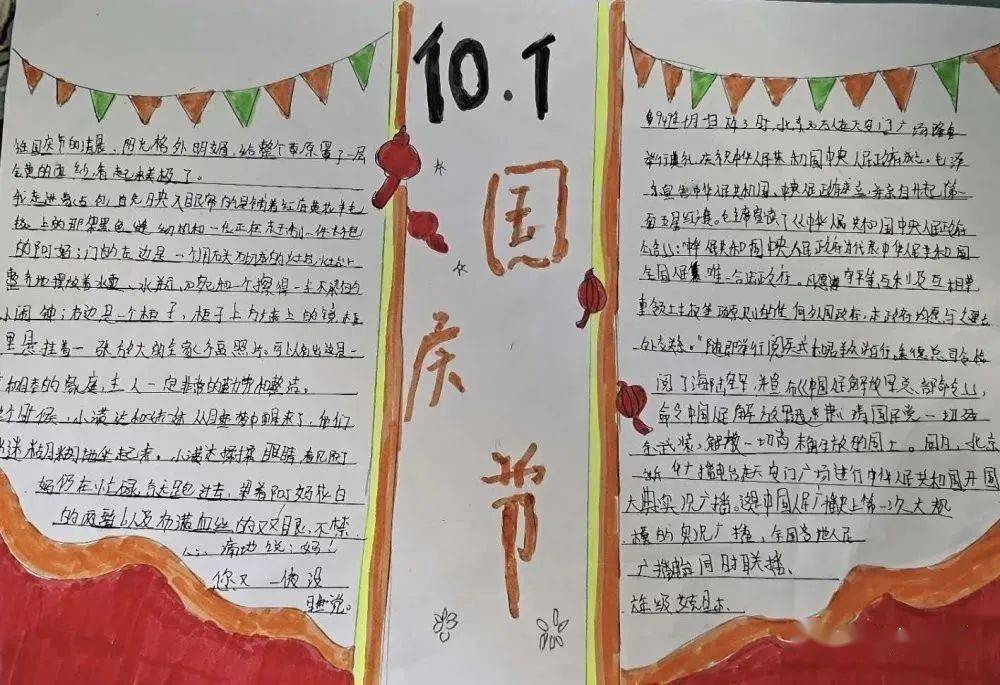 10.1
国庆节
在国庆节的清晨，阳光格外明媚，给整个草原罩了一层
金黄的面纱看起来美极了。
我走进蒙古包，首先映入眼帘的是铺着红底黄花羊毛
毯上的那架黑色缝纫机和一位正在
的阿妈；门的左边是一个
整齐地摆放着水壶、水瓶、 和一个擦得一尘不染的
小闹钟；右边是一个柜子，柜子上方墙上的镜框
里悬挂着一张放大的全家福照片。可以看出这是一
和睦的家庭，主人一定非常的勤劳和整洁。
个时候，小满达和妹妹从睡梦中醒来了，他们
迷糊糊地坐起来。小满达揉揉眼睛看见阿
妈仍在忙碌，急忙跑过去，望着阿妈花白
的两鬓以及布满血丝的双眼，不禁
心痛地说：妈！
你又一夜没
睡觉。
1949年10月1日下午3时，北京 在天安门广场隆重
举行典礼，庆祝中华人民共和国中央人民政府成立。毛泽
东宣告中华人民共和国、中央人民政府成立，并亲自升起第一
面五星红旗。毛主席宣读了《中华人民共和国中央人民政府
公告》：“中华人民共和国中央人民政府为代表中华人民共和国
全国人民唯一合法政府。凡愿遵守平等、互利及互相尊
重领土主权等项原则的任何外国政府，本政府均愿与之建立
外交关系。”随即举行阅兵式和 朱德总司令检
阅了海陆空军，并宣布《中国人民解放军总部命令》，
命令中国人民解放军迅速肃清国民党一切
武装，解放一切尚未解放的国土。同日，北京
新华广播电台在天安门广场进行中华人民共和国开国
大典实况广播。这是中国人民广播史上第一次大规
模的实况广播，全国各地人民
广播电台同时联播。